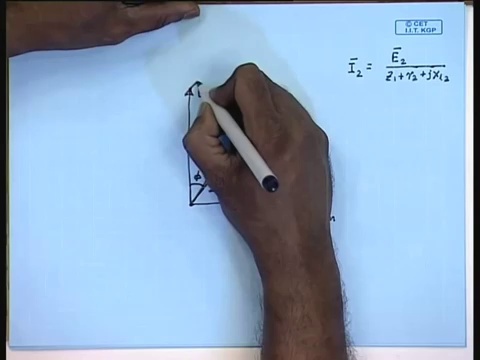 © CET
I.I.T. KGP
Ī₂ = Ē₂ / z₁ + r₂ + jx₁₂
φ